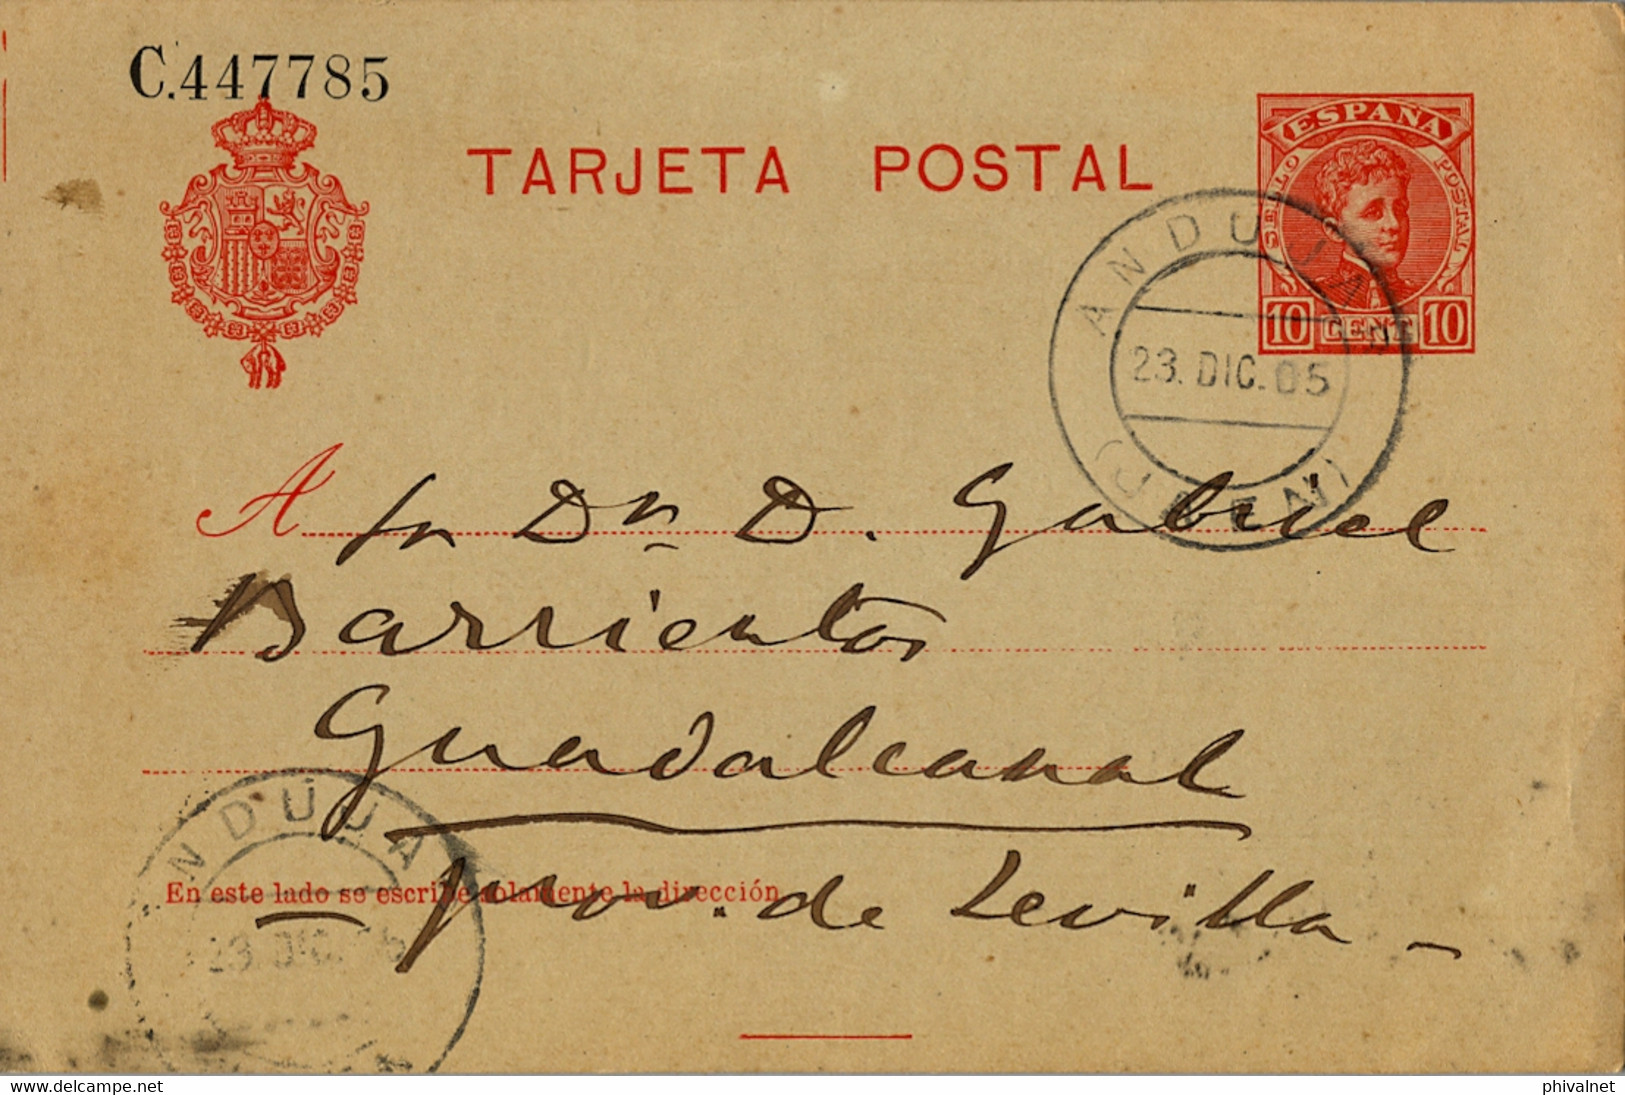 C.447785
TARJETA POSTAL
ESPAÑA
SELLO POSTAL
10 CENT 10
ANDUJAR
23. DIC. 05
(JAEN)
A Sr Dn D. Gabriel
Barrientos
Guadalcanal
prov. de Sevilla
En este lado se escribe solamente la dirección
ANDUJAR
23. DIC. 05
www.delcampe.net
phivalnet